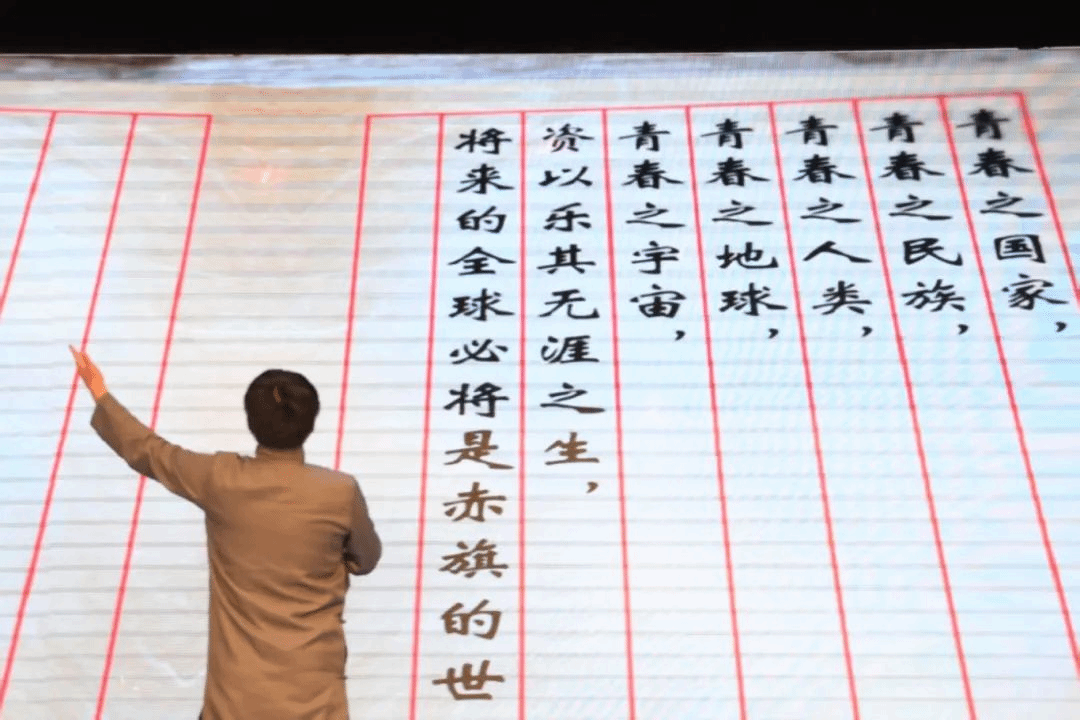 青春之国家，
青春之民族，
青春之人类，
青春之地球，
青春之宇宙，
资以乐其无涯之生，
将来的全球必将是赤旗的世